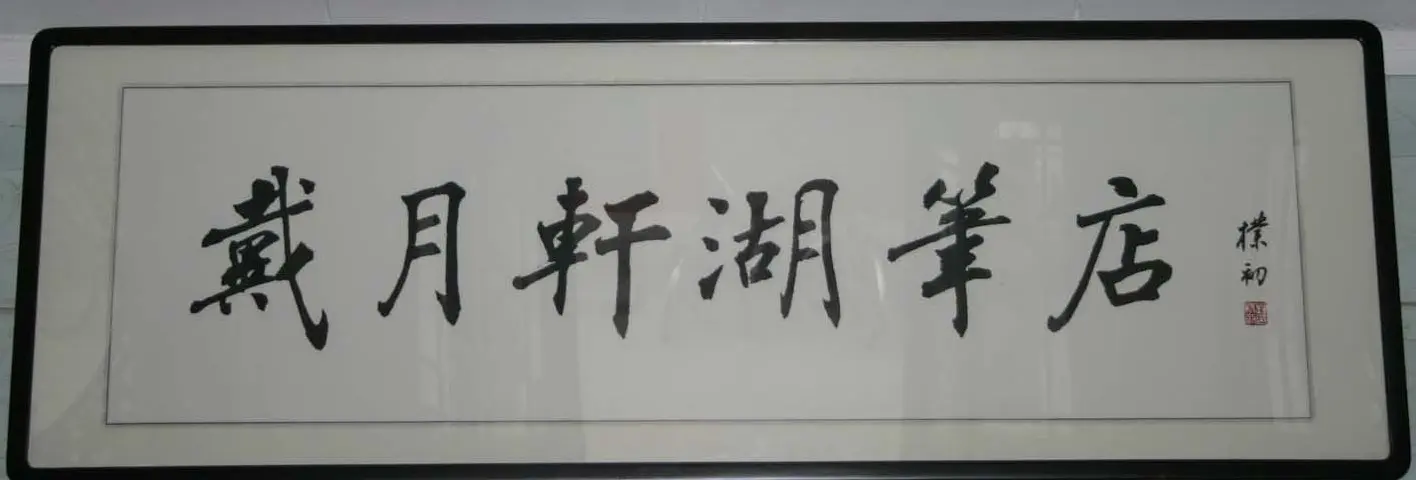 戴月軒湖筆店
樸初